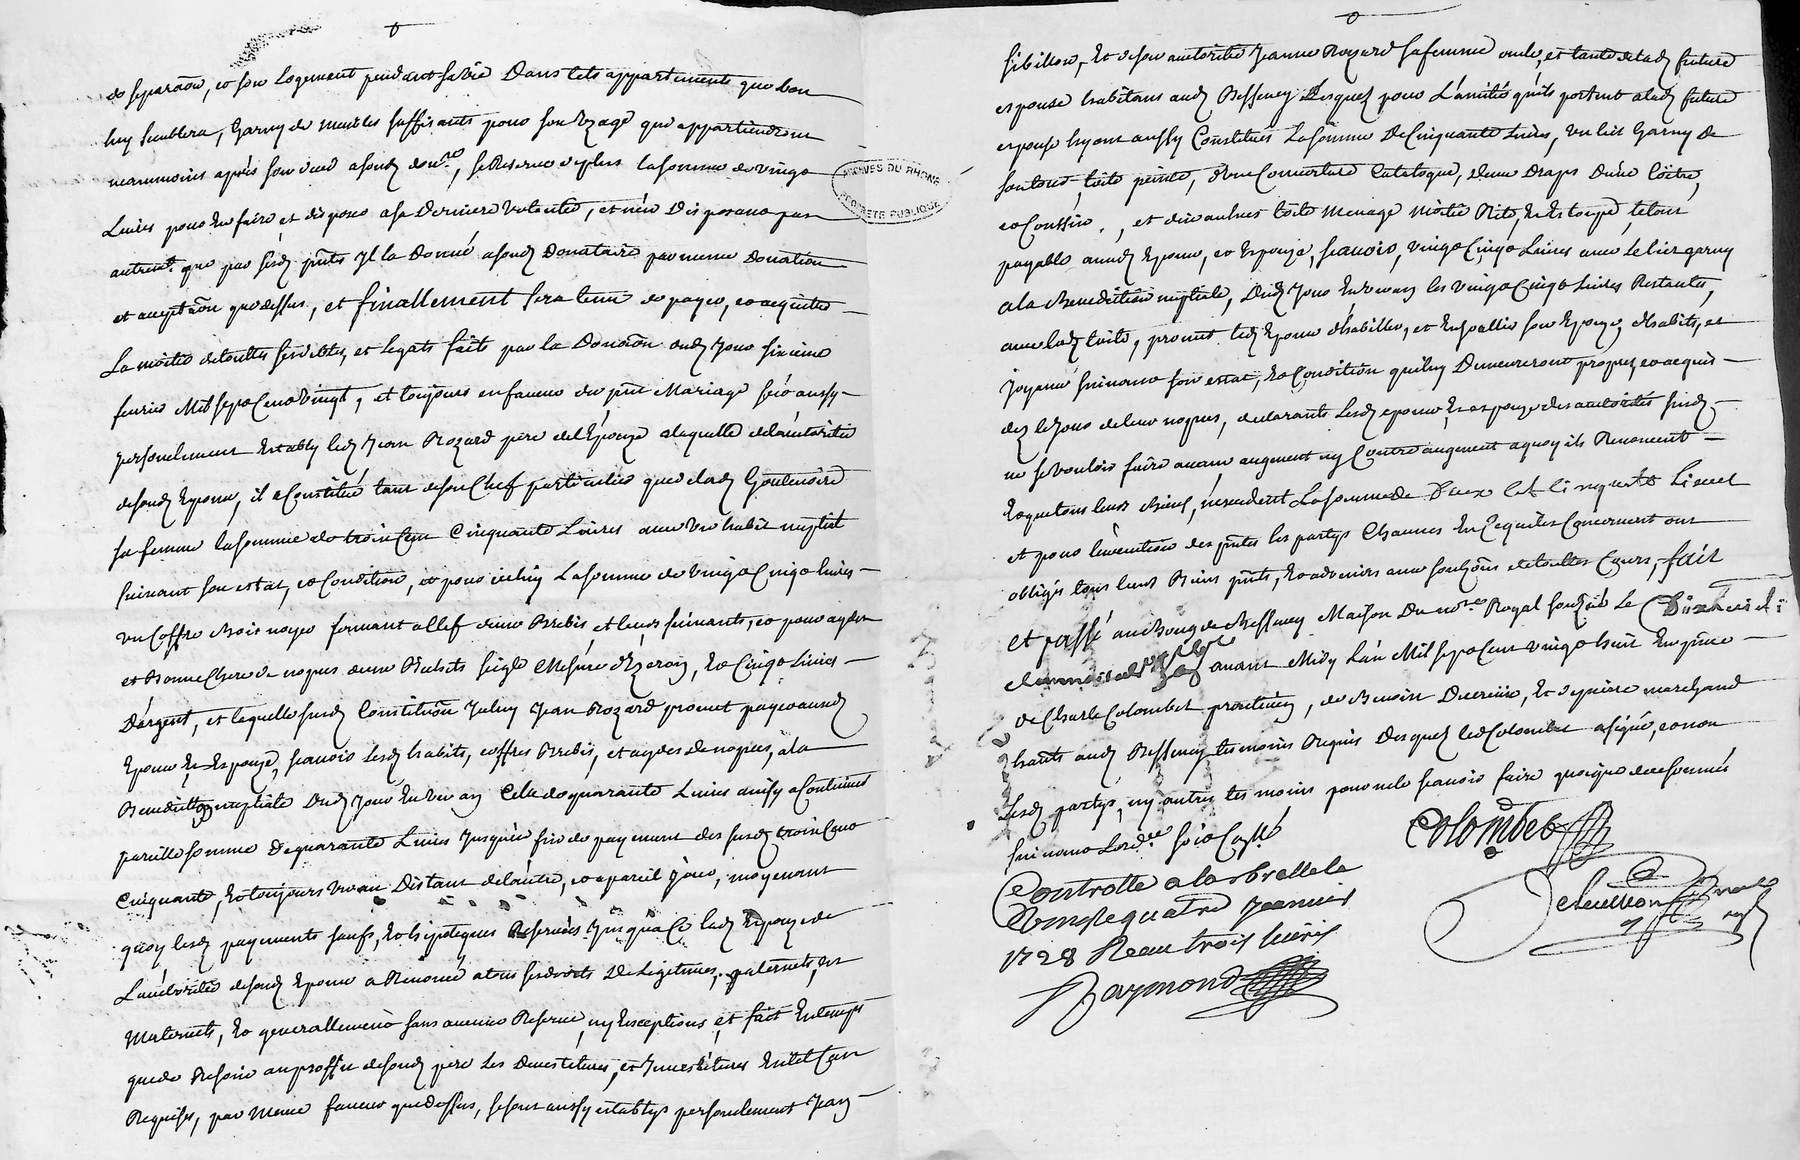 de separaon, et son Logement pendant sa vie Dans tels appartements que bon
luy semblera, Garny de meubles suffisants pour son Uzage qui appartiendront
neanmoins après son deced asondt donre, se Reserve deplus lasomme de vingt
Livres pour En faire et disposer a sa Derniere volonté, et n'en Disposant pas
autremt que par sesdt pnts Il la Donné asondt Donataire par meme Donation
et acceptaon que dessus, et finallement sera tenu de payer, et acquitter
La moitié detouttes ses debtes, et legats faits par la Donaon audt Jour sixieme
fevrier Mil sept Cent vingt, et toujours enfaveur du pnt Mariage s'est aussy
personelement Estably ledt Jean Rozard pere del'Epouze alaquelle del'autorité
desondt Epoux, il a Constitué tant deson Chef particulier que deladt Gontenoire
sa femme lasomme de trois Cent Cinquante Livres avec un habit nuptial
suivant son estat, et Condition, et pour icelluy La somme de vingt Cinq livres
un Coffre bois noyer fermant a Clef deux Brebis et leurs suivants, et pour ayder
et Bonne Chere de nopces deux Bichets seigle Mesure d'Yzeron, Et Cinq Livres
D'argent, et laquelle susdt Constitution Iceluy Jean Rozard promet payer audt
Epoux Et Espouze, scavoir Lesdt habits, coffres Brebis, et aydes denopces, ala
Benediction nuptiale Dudt Jour En un an Celle de quarante Livres ainsy a Continuer
pareille somme De quarante Livres Jusqu'en fin de payement des susdt trois Cent
Cinquante, Et toujours un an Distant de l'autre, et a pareil Jour, moyenant
quoy lesdt payements saufs, Et hipoteques Reservées Jusqua Ce ladt Epouze de
L'authorité desondt Epoux a Renoncé atous ses droits De Legitimes, paternels, et
Maternels, Et generallement sans aucune Reserve, ny Exceptions, et fait En temps
que de Besoin au proffit desondt pere Les Devestitures, et Investitures En tel Cas
Requises, par meme faveur que dessus, sesont aussy establys personelement Jean
Sibillon, Et de son autorité Jeanne Rozard sa femme oncle, et tante deladt future
espouse habitans audt Bessenay Lesquels pour L'amitié qu'ils portent aladt future
espouse luy ont aussy Constitués Lasomme De Cinquante Livres, un lict Garny de
son tour toile peinte, d'une Couverture Catalogne, deux Draps D'une Coitre,
et Coussin, et dix aulnes toile Menage Moitié Rite, Et Estoupe, le tout
payable auxdt Epoux, et Espouze, scavoir, vingt Cinq Livres avec Le lict garny
ala Benediction nuptiale, Dudt Jour En un an les vingt Cinq Livres Restantes,
avec ladt toile, promet ledt Epoux d'habiller, et Enjoaller son Epouze, d'habits, et
Joyeaux suivant son estat, Et Condition qui luy Demeureront propres, et acquis
dez le Jour deleur nopces, declarants Lesdt epoux, Et espouze des autorités susdt
ne se vouloir faire aucun augment ny Contre augment aquoy ils Renoncent
Et que tous leurs Biens, n'excedent La somme de Deux Cet Cinquante Livres
et pour l'execution des pntes les partys Chacunes En Ce qui les Concernent ont
obligés tous leurs Biens pnts, Et advenirs aux soumons detouttes Cours, fait
et passé au Bourg de Bessenay Maison Du nore Royal soussigné Le Dixhuit
avant Midy L'an Mil sept Cent vingt huit En pnce
de Charle Colombet praticien, de Benoist Ducreux, Et marchand
hants audt Bessenay temoins Requis Desquels led Colombet asigné, et non
Lesdt partys, ny autres temoins pour ne le scavoir faire quoique de ce sommés
suivant Lordce
Colombet
Controllé a la Brelle le
vingt quatre Janvier
1728 Reçu trois livres
Raymond